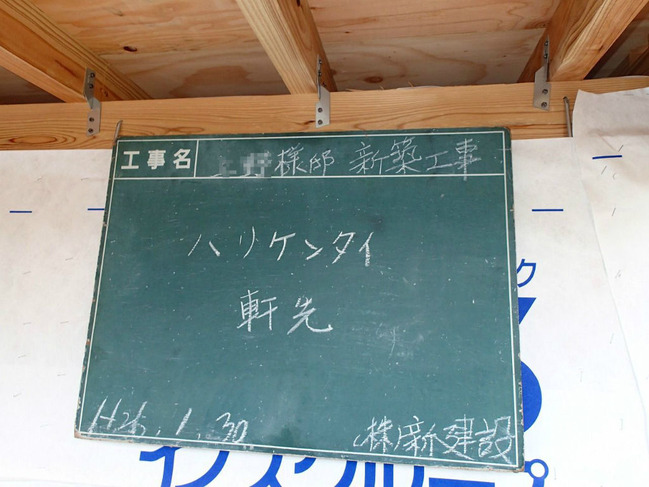 工事名 様邸 新築工事
ハリケンタイ
軒先
H26.1.30
㈱新建設
ク